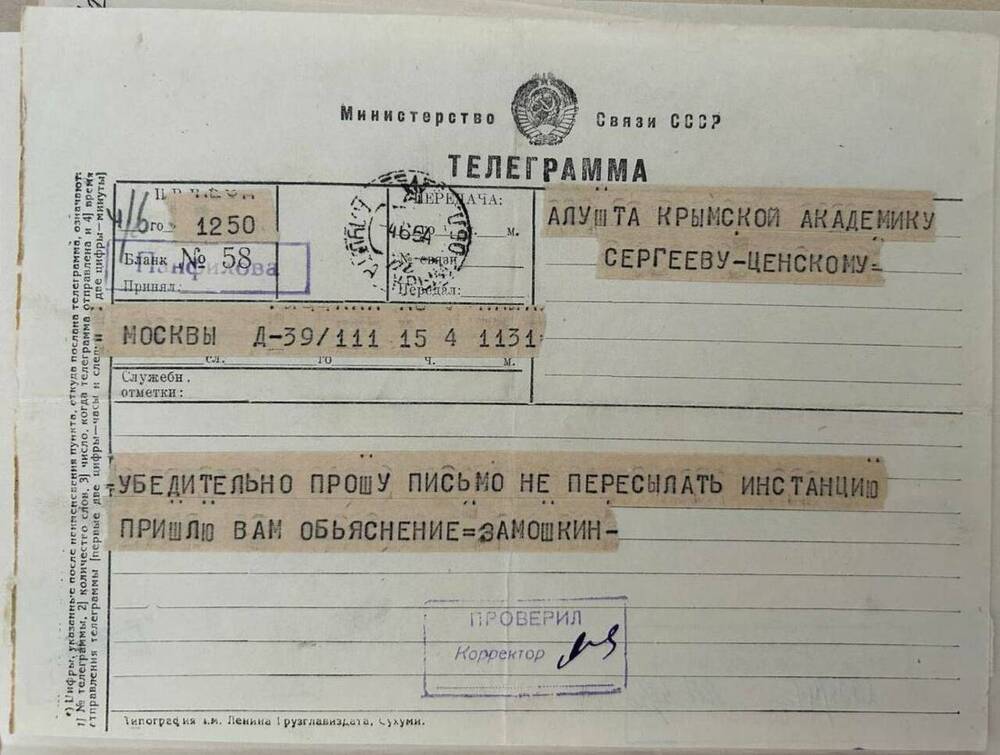 Министерство Связи СССР
ТЕЛЕГРАММА
4/6 го 1250
Бланк № 58
Панфилова
Принял:
ПЕРЕДАЧА:
м.
№ связи
Передал:
4654
АЛУШТА КРЫМСКОЙ АКАДЕМИКУ
СЕРГЕЕВУ-ЦЕНСКОМУ=
МОСКВЫ Д-39/111 15 4 1131=
сл. го ч. м.
Служебн.
отметки:
=УБЕДИТЕЛЬНО ПРОШУ ПИСЬМО НЕ ПЕРЕСЫЛАТЬ ИНСТАНЦИЮ
ПРИШЛЮ ВАМ ОБЬЯСНЕНИЕ=ЗАМОШКИН-
ПРОВЕРИЛ
Корректор
Типография им. Ленина Грузглавиздата, Сухуми.
*) Цифры, указанные после наименования пункта, откуда послана телеграмма, означают:
1) № телеграммы, 2) количество слов, 3) число, когда телеграмма отправлена и 4) время
отправления телеграммы [первые две цифры—часы и след. две цифры—минуты]